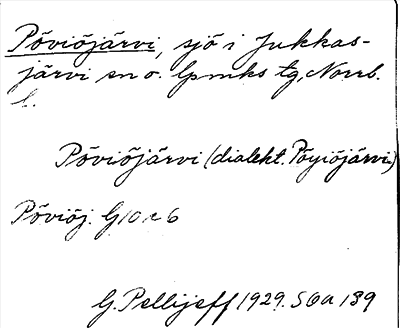 Põviõjärvi, sjö i Jukkas-
järvi sn o. lpmks tg, Norrb.
l.
Põviõjärvi (dialekt. Põyiõjärvi)
Põviõj. G10 c 6
G. Pellijeff 1929. SOA 139